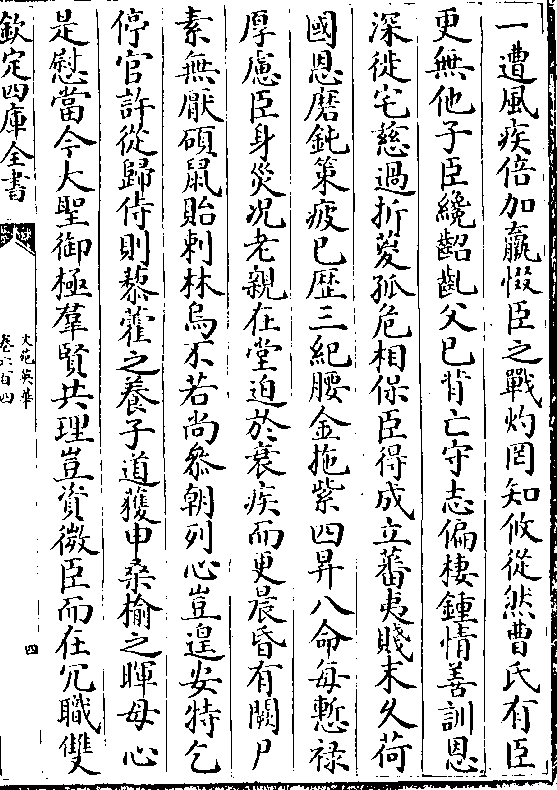 一遭風疾倍加羸惙臣之戰灼罔知攸從然曹氏有臣
更無他子臣纔齠齓父已背亡守志偏棲鍾情善訓恩
深徙宅慈過折葼孤危相保臣得成立蕃夷賤末久荷
國恩磨鈍策疲已歴三紀腰金拖紫四昇八命每慙祿
厚慮臣身災况老親在堂迫於衰疾而更晨昏有闕尸
素無厭碩鼠貽刺林烏不若尚叅朝列心豈遑安特乞
停官許從歸侍則藜藿之養子道獲申桑榆之暉母心
是慰當今大聖御極羣賢共理豈資微臣而在冗職雙
欽定四庫全書
文苑英華
卷六百四
四